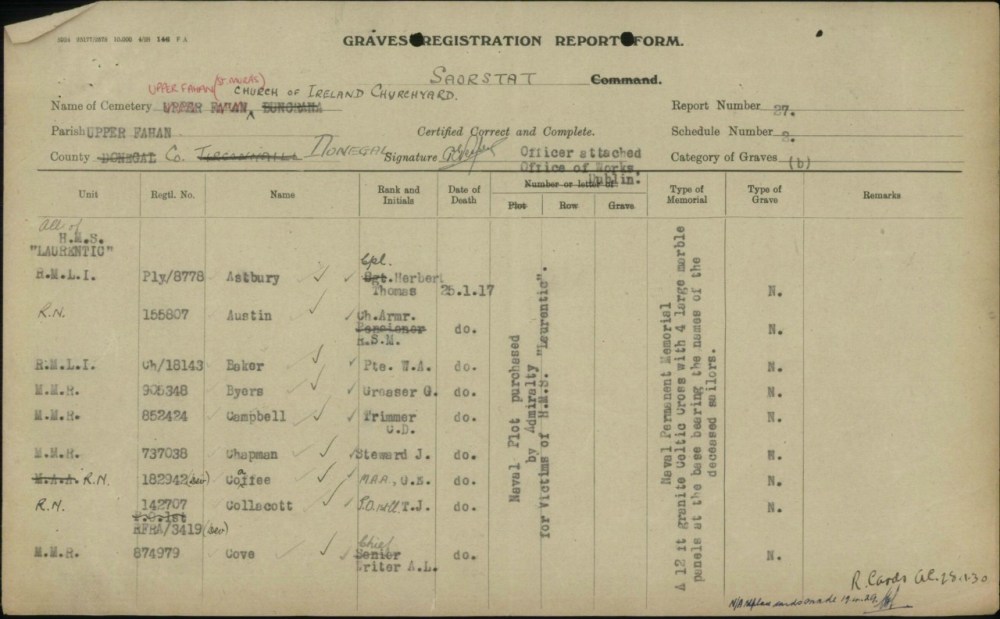 GRAVES REGISTRATION REPORT FORM.
SAORSTAT Command.
UPPER FAHAN (St MURAS) CHURCH OF IRELAND CHURCHYARD.
Name of Cemetery UPPER FAHAN, BUNCRANA
Report Number 27.
Parish UPPER FAHAN
Certified Correct and Complete.
Schedule Number 3.
County DONEGAL Co. TIRCONNAILL DONEGAL
Signature
Officer attached
Office of Works,
Dublin.
Category of Graves (b)
Unit Regtl. No. Name Rank and Initials Date of Death Number or letter of: Plot Row Grave Type of Memorial Type of Grave Remarks
All of
H.M.S.
"LAURENTIC"
R.M.L.I. Ply/8778 Astbury Cpl. Sgt. Herbert
Thomas 25.1.17 N.
R.N. 155807 Austin Ch.Armr.
Pensioner do. N.
H.S.M.
R.M.L.I. Ch/18143 Baker Pte. W.A. do. N.
M.M.R. 905348 Byers Greaser G. do. N.
M.M.R. 852424 Campbell Trimmer do. N.
C.D.
M.M.R. 737038 Chapman Steward J. do. N.
M.A.A. R.N. 182942 (Dev) Coffee a MAA, C.E. do. N.
R.N. 142707 Collacott T.J. do. N.
P.O.1st
RFRA/3419 (Dev)
M.M.R. 874979 Cove Chief
Senior do. N.
Writer A.L.
Naval Plot purchased
by Admiralty
for Victims of H.M.S. "Laurentic".
Naval Permanent Memorial
A 12 ft granite Celtic Cross with 4 large marble
panels at the base bearing the names of the
deceased sailors.
R. Cards